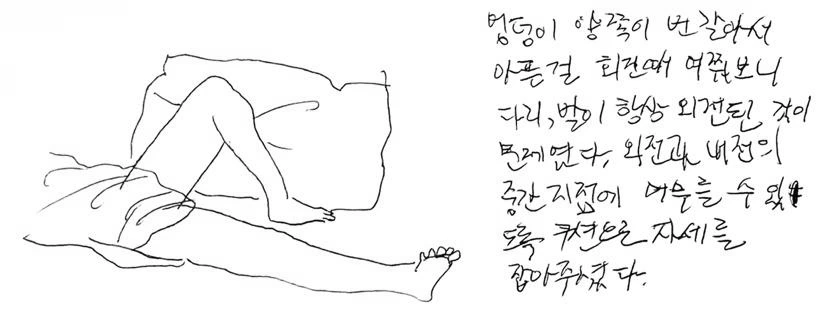 엉덩이 양쪽이 번갈아서
아픈걸 회진때 여쭤보니
다리, 발이 항상 외전된 것이
문제였다. 외전과 내전의
중간지점에 머무를 수 있
도록 쿠션으로 자세를
잡아주셨다.